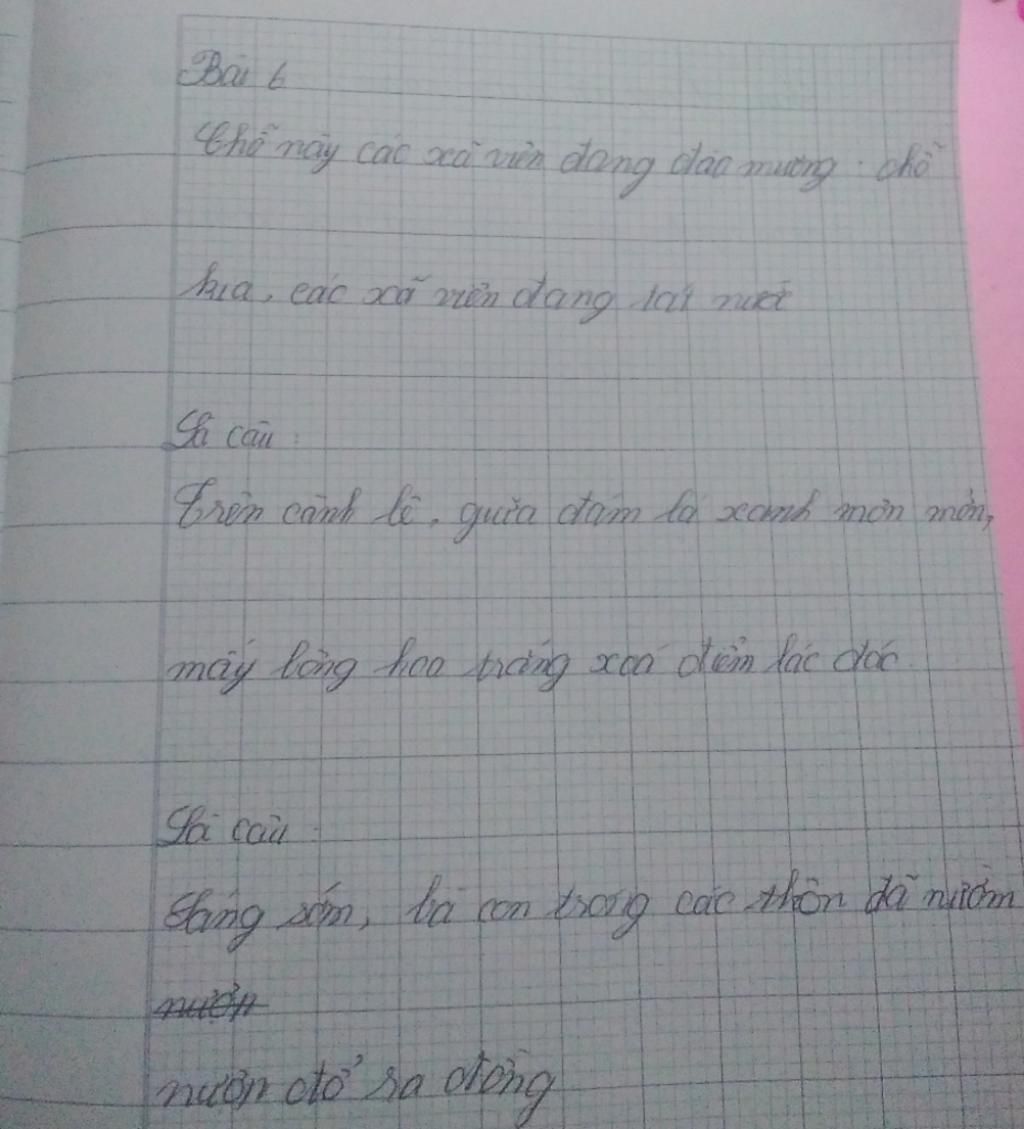 Bài 6
Chỗ này các xã viên đang đào mương. chỗ
kia, các xã viên đang tát nước
Là câu:
Trên cành lê, giữa đám lá xanh mơn mởn,
mấy bông hoa trắng xoá điểm lác đác.
Là câu:
Sáng sớm, bà con trong các thôn đã nườm
nườn đổ ra đồng